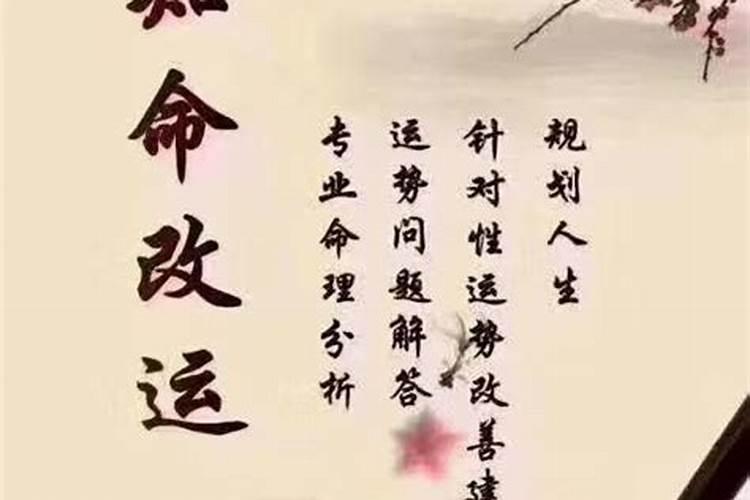 规划人生
针对性运势改善建
运势问题解答
专业命理分析
知命改运